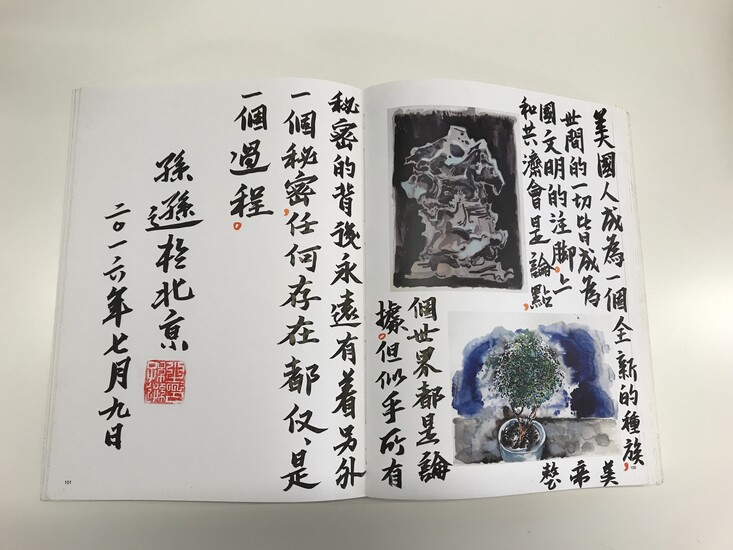 美國人成為一個全新的種族,
世間的一切皆成為美
國文明的注脚。上帝
和共濟會是論點,整
個世界都是論
據。但似乎所有
秘密的背後永遠有着另外
一個秘密,任何存在都仅、是
一個過程。
孫遜於北京
二〇一六年七月九日
100
101